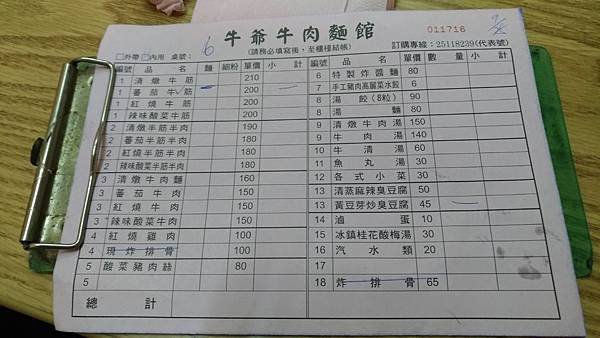 牛爺牛肉麵館
011716
(請務必填寫後，至櫃檯結帳)
訂購專線：25118239(代表號)
□外帶 □內用 桌號： 6
編號 品名 麵 細粉 單價 小計
1 清燉牛筋 210
1 番茄牛筋 200
1 紅燒牛筋 200
1 辣味酸菜牛筋 200
2 清燉半筋半肉 190
2 番茄半筋半肉 180
2 紅燒半筋半肉 180
2 辣味酸菜半筋半肉 180
3 清燉牛肉麵 160
3 番茄牛肉 150
3 紅燒牛肉 150
3 辣味酸菜牛肉 150
4 紅燒雞肉 100
4 現炸排骨 100
5 酸菜豬肉絲 80
5
總計
編號 品名 單價 數量 小計
6 特製炸醬麵 80
7 手工豬肉高麗菜水餃 6
8 湯餃(8粒) 90
8 湯麵 80
9 清燉牛肉湯 150
9 牛肉湯 140
10 牛清湯 60
11 魚丸湯 30
12 各式小菜 30
13 清蒸麻辣臭豆腐 50
13 黃豆芽炒臭豆腐 45
14 滷蛋 10
15 冰鎮桂花酸梅湯 30
16 汽水類 20
17
18 炸排骨 65